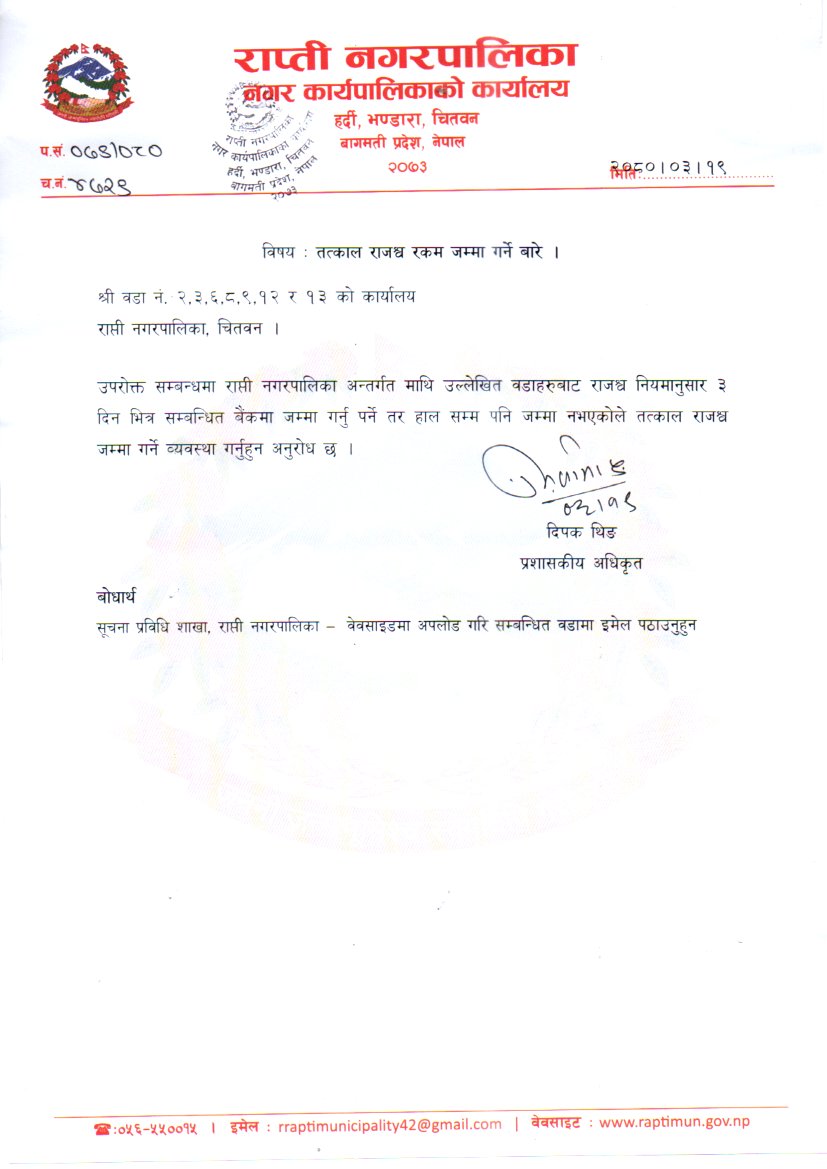 राप्ती नगरपालिका
नगर कार्यपालिकाको कार्यालय
हर्दी, भण्डारा, चितवन
बागमती प्रदेश, नेपाल
२०७३
राप्ती नगरपालिका
नगर कार्यपालिकाको कार्यालय
हर्दी, भण्डारा, चितवन
बागमती प्रदेश, नेपाल
२०७३
प.सं. ०७९/०८०
च.नं. ४७२९
मिति: २०८०/०३/१९
विषय : तत्काल राजश्व रकम जम्मा गर्ने बारे ।
श्री वडा नं. २,३,६,८,९,१२ र १३ को कार्यालय
राप्ती नगरपालिका, चितवन ।
उपरोक्त सम्बन्धमा राप्ती नगरपालिका अन्तर्गत माथि उल्लेखित वडाहरुबाट राजश्व नियमानुसार ३
दिन भित्र सम्बन्धित बैंकमा जम्मा गर्नु पर्ने तर हाल सम्म पनि जम्मा नभएकोले तत्काल राजश्व
जम्मा गर्ने व्यवस्था गर्नुहुन अनुरोध छ ।
०३/१९
दिपक थिङ
प्रशासकीय अधिकृत
बोधार्थ
सूचना प्रविधि शाखा, राप्ती नगरपालिका – वेवसाइडमा अपलोड गरि सम्बन्धित वडामा इमेल पठाउनुहुन
☎:०५६-५५००१५ । इमेल : rraptimunicipality42@gmail.com | वेबसाइट : www.raptimun.gov.np